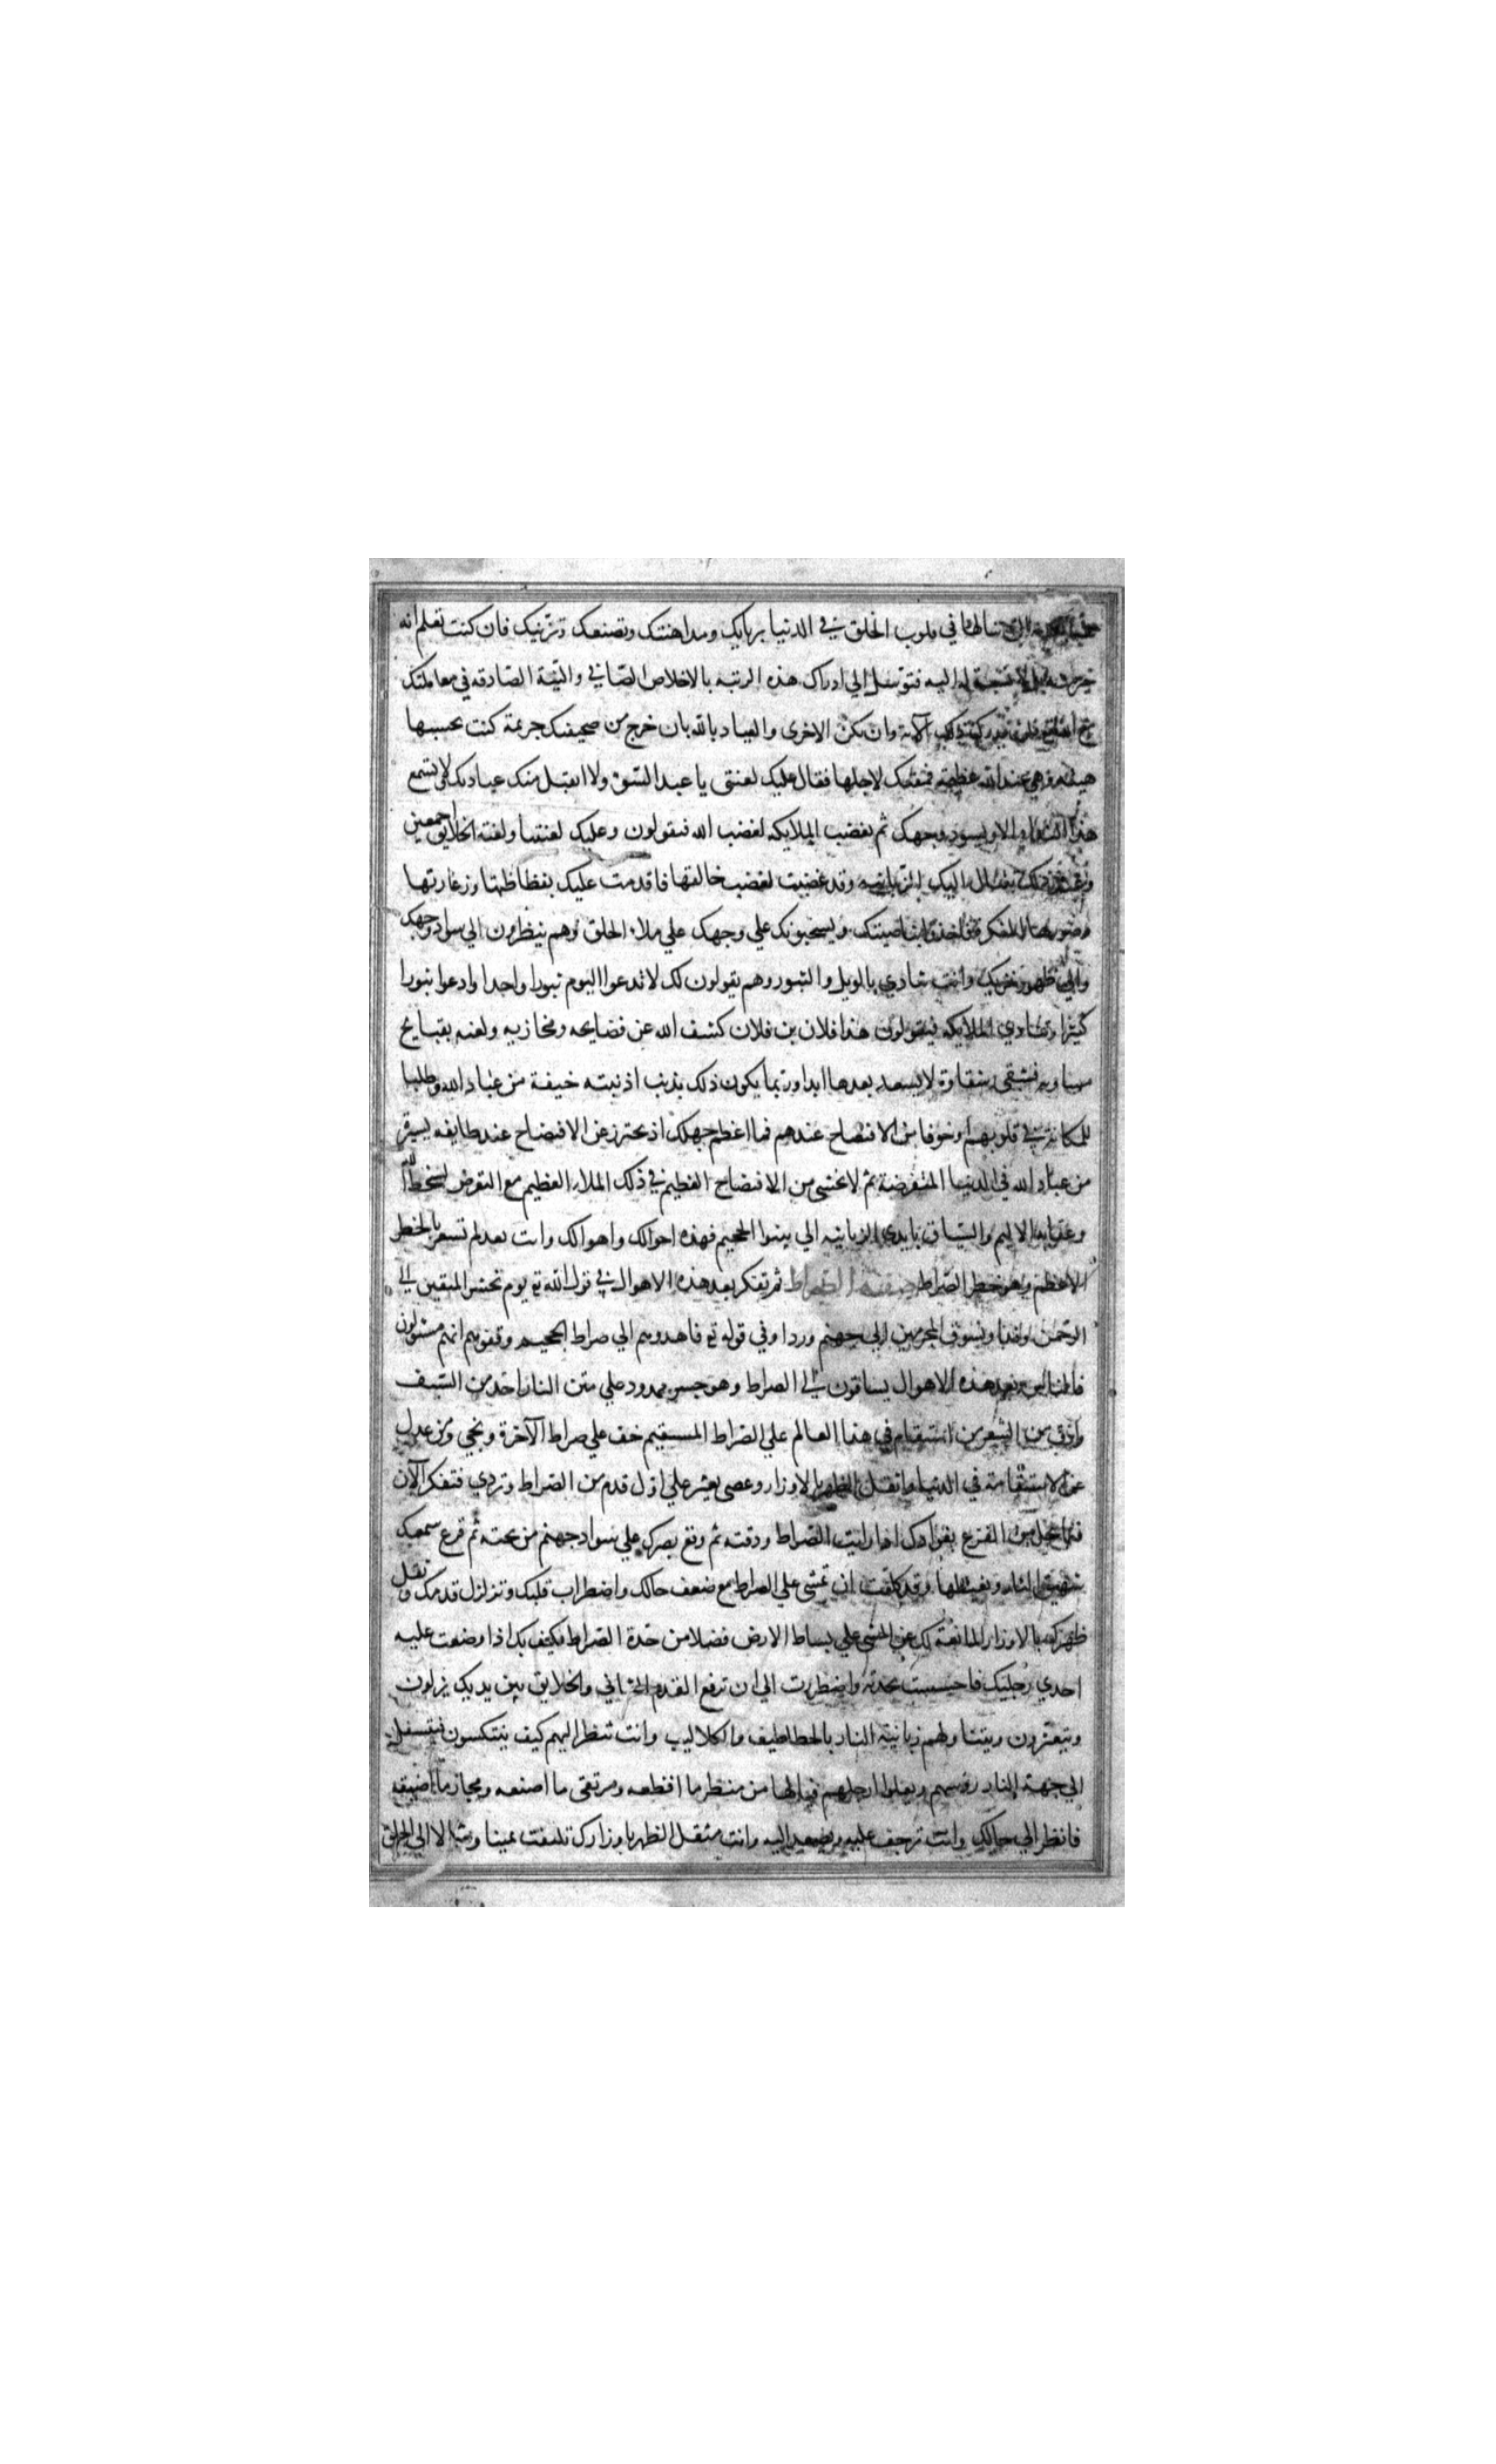 التي تنالها في قلوب الخلق في الدنيا بريايك ومداهنتك وتصنعك وتزينك فان كنت تعلم انه
خير منه بل لا نسبة له اليه فتوسل الي ادراك هذه الرتبه بالاخلاص الصافي والنية الصادقه في معاملتك
مع الله فلن تدرك ذلك الا به وان تكن الاخرى والعياد بالله بان خرج من صحيفتك جريمة كنت تحسبها
هينه وهي عند الله عظيمه فمقتك لاجلها فقال عليك لعنتي يا عبد السوء ولا اتقبل منك عبادتك فلا تسمع
هذا النداء الا ويسود وجهك ثم يغضب الملايكه لغضب الله فيقولون وعليك لعنتنا ولعنة الخلايق اجمعين
وعند ذلك تنثال اليك الزبانيه وقد غضبت لغضب خالقها فاقدمت عليك بفظاظتها وزعارتها
وصورها المنكره فاخذوا بناصيتك ويسحبونك علي وجهك علي ملاء الخلق وهم ينظرون الي سواد وجهك
والي ظهور خزيك وانت تنادي بالويل والثبور وهم يقولون لك لا تدعوا اليوم ثبورا واحدا وادعوا ثبورا
كثيرا وتنادي الملايكه فيقولون هذا فلان بن فلان كشف الله عن فضايحه ومخازيه ولعنه بقبايح
مساويه فشقي شقاوة لا يسعد بعدها ابدا وربما يكون ذلك بذنب اذنبته خيفة من عباد الله وطلبا
للمكانة في قلوبهم وخوفا من الافتضاح عندهم فما اعظم جهلك اذ تحترز عن الافتضاح عند طايفه يسيرة
من عباد الله في الدنيا المنقرضة ثم لا تخشي من الافتضاح العظيم في ذلك الملاء العظيم مع التعرض لسخط الله
وعذابه الاليم والسياق بايدي الزبانيه الي سواء الجحيم فهذه احوالك واهوالك وانت بعد لم تشعر بالخطر
الاعظم وهو خطر الصراط صفة الصراط ثم تفكر بعد هذه الاهوال في قول الله تع يوم نحشر المتقين الي
الرحمن وفدا ونسوق المجرمين الي جهنم وردا وفي قوله تع فاهدوهم الي صراط الجحيم وقفوهم انهم مسئولون
فالناس بعد هذه الاهوال يساقون الي الصراط وهو جسر ممدود علي متن النار احد من السيف
وادق من الشعر من استقام في هذا العالم علي الصراط المستقيم خف علي صراط الآخرة ونجي ومن عدل
عن الاستقامة في الدنيا واثقل الظهر بالاوزار وعصى يعثر علي اول قدم من الصراط وتردي فتفكر الآن
فيما يحل من الفزع بفوادك اذا رايت الصراط ودقته ثم وقع بصرك علي سواد جهنم من تحته ثم قرع سمعك
شهيق النار وتغيظها وقد كلفت ان تمشي علي الصراط مع ضعف حالك واضطراب قلبك وتزلزل قدمك وثقل
ظهرك بالاوزار المانعة لك عن المشي علي بساط الارض فضلا من حدة الصراط فكيف بك اذا وضعت عليه
احدي رجليك فاحسست بحدته واضطررت الي ان ترفع القدم الثاني والخلايق بين يديك يزلون
ويتعثرون ويتناولهم زبانية النار بالخطاطيف والكلاليب وانت تنظر اليهم كيف ينتكسون فيتسفل
الي جهة النار رؤسهم ويعلوا ارجلهم فيالها من منظر ما افظعه ومرتقى ما اصعبه ومجاز ما اضيقه
فانظر الي حالك وانت ترجف عليه وتصعد اليه وانت مثقل الظهر باوزارك تلتفت يمينا وشمالا الي الخلق